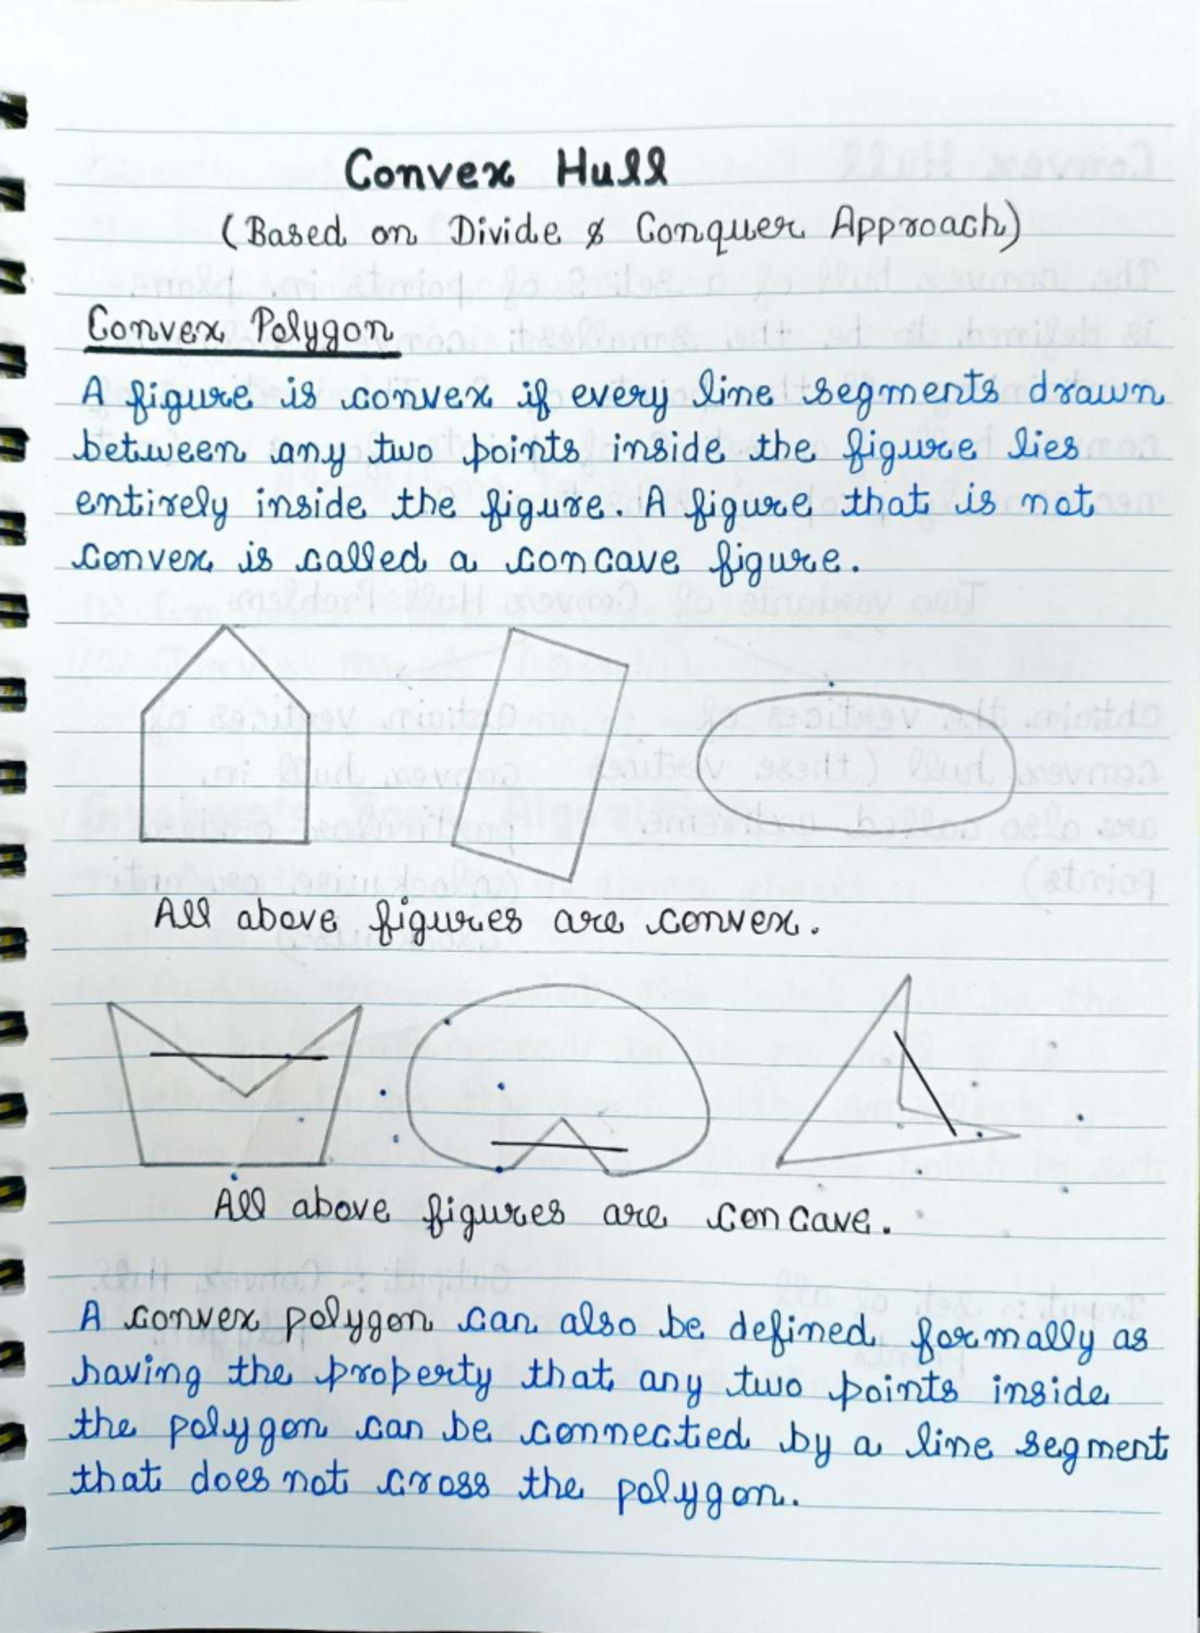 Convex Hull
(Based on Divide & Conquer Approach)
Convex Polygon
A figure is convex if every line segments drawn
between any two points inside the figure lies
entirely inside the figure. A figure that is not
convex is called a concave figure.
All above figures are convex.
All above figures are concave.
A convex polygon can also be defined formally as
having the property that any two points inside
the polygon can be connected by a line segment
that does not cross the polygon.